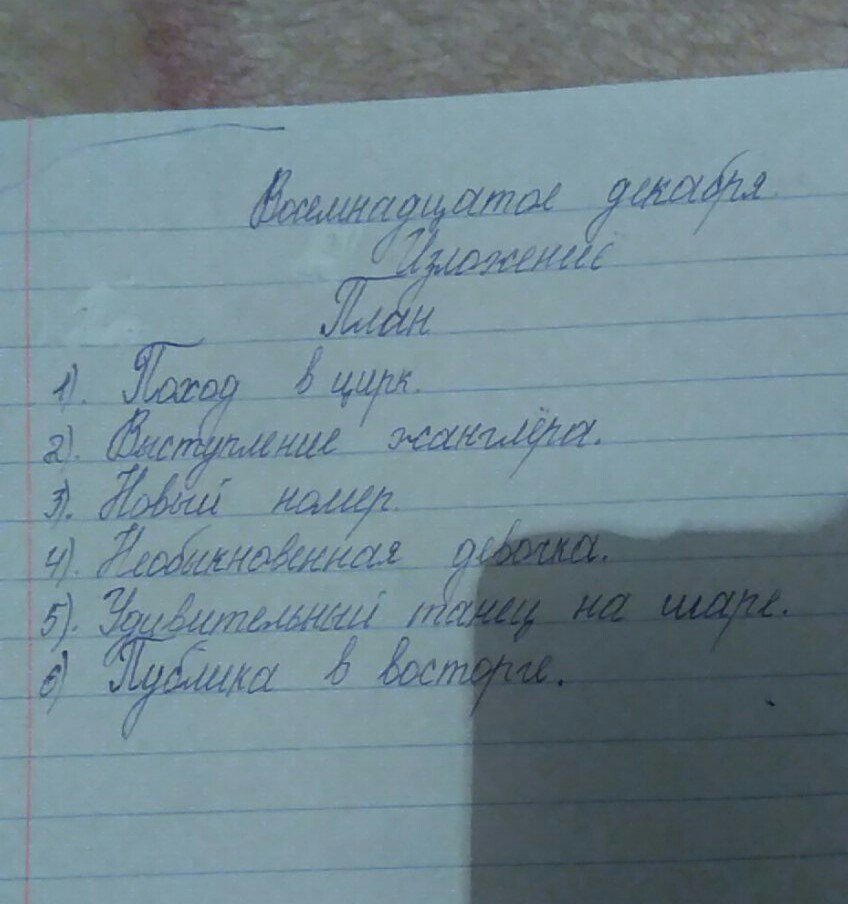 Восемнадцатое декабря
Изложение
План
1). Поход в цирк.
2). Выступление жанглёра.
3). Новый номер.
4). Необыкновенная девочка.
5). Удивительный танец на шаре.
6) Публика в восторге.